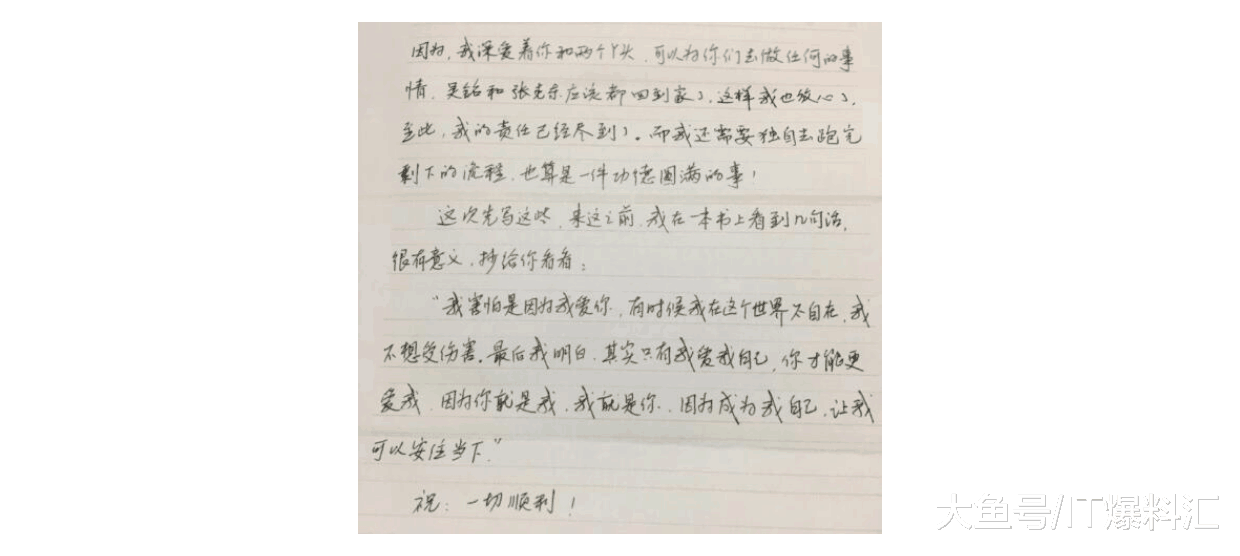 因为，我深爱着你和两个丫头，可以为你们去做任何的事
情，吴铭和张克东应该都回到家了，这样我也放心了，
至此，我的责任已经尽到了。而我还需要独自去跑完
剩下的流程，也算是一件功德圆满的事！
这次先写这些，来这之前，我在一本书上看到几句话，
很有意义，抄给你看看：
“我害怕是因为我爱你，有时候我在这个世界不自在，我
不想受伤害。最后我明白，其实只有我爱我自己，你才能更
爱我，因为你就是我，我就是你，因为成为我自己，让我
可以安住当下。”
祝：一切顺利！
大鱼号/IT爆料汇